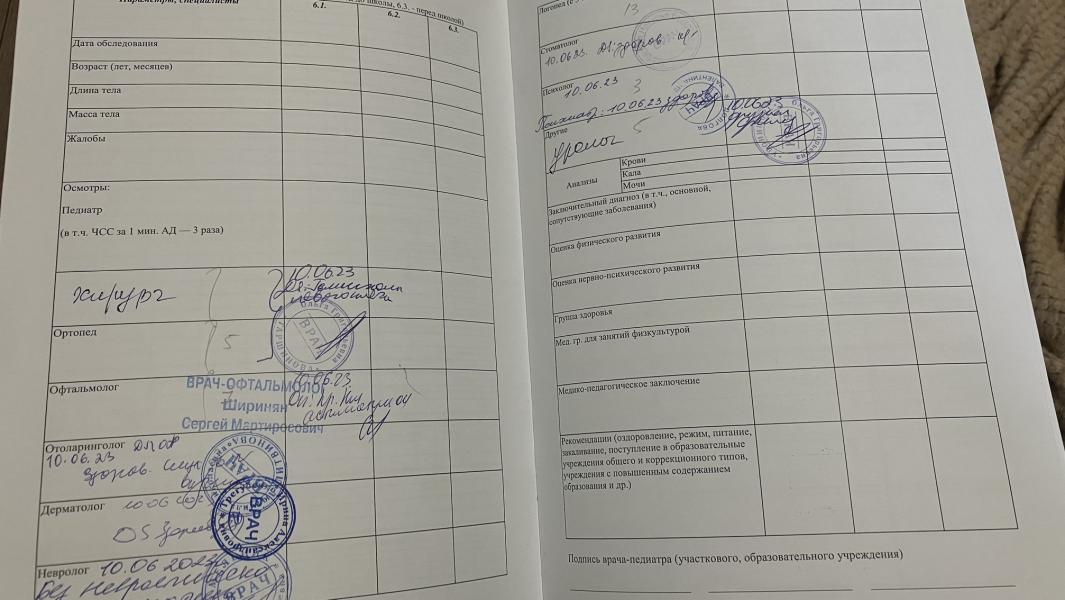 Параметры, специалисты
школы, 6.3. - перед школой)
6.1.
6.2.
6.3.
Дата обследования
Возраст (лет, месяцев)
Длина тела
Масса тела
Жалобы
Осмотры:
Педиатр
(в т.ч. ЧСС за 1 мин. АД — 3 раза)
хирург
10.06.23
ВРАЧ
Ортопед
5
Офтальмолог
10.06.23
ВРАЧ-ОФТАЛЬМОЛОГ
7
Ширинян
Сергей Мартиросович
Отоларинголог
10.06.23
здоров.
Дерматолог
ВРАЧ
Невролог 10.06.2023
ВРАЧ
Логопед
13
Стоматолог
10.06.23. DS: здоров
Психолог
10.06.23
3
Психиатр: 10.06.23 здоров
10.06.23
Другие
уролог
5
Анализы
Крови
Кала
Мочи
Заключительный диагноз (в т.ч., основной,
сопутствующие заболевания)
Оценка физического развития
Оценка нервно-психического развития
Группа здоровья
Мед. гр. для занятий физкультурой
Медико-педагогическое заключение
Рекомендации (оздоровление, режим, питание,
закаливание, поступление в образовательные
учреждения общего и коррекционного типов,
учреждения с повышенным содержанием
образования и др.)
Подпись врача-педиатра (участкового, образовательного учреждения)